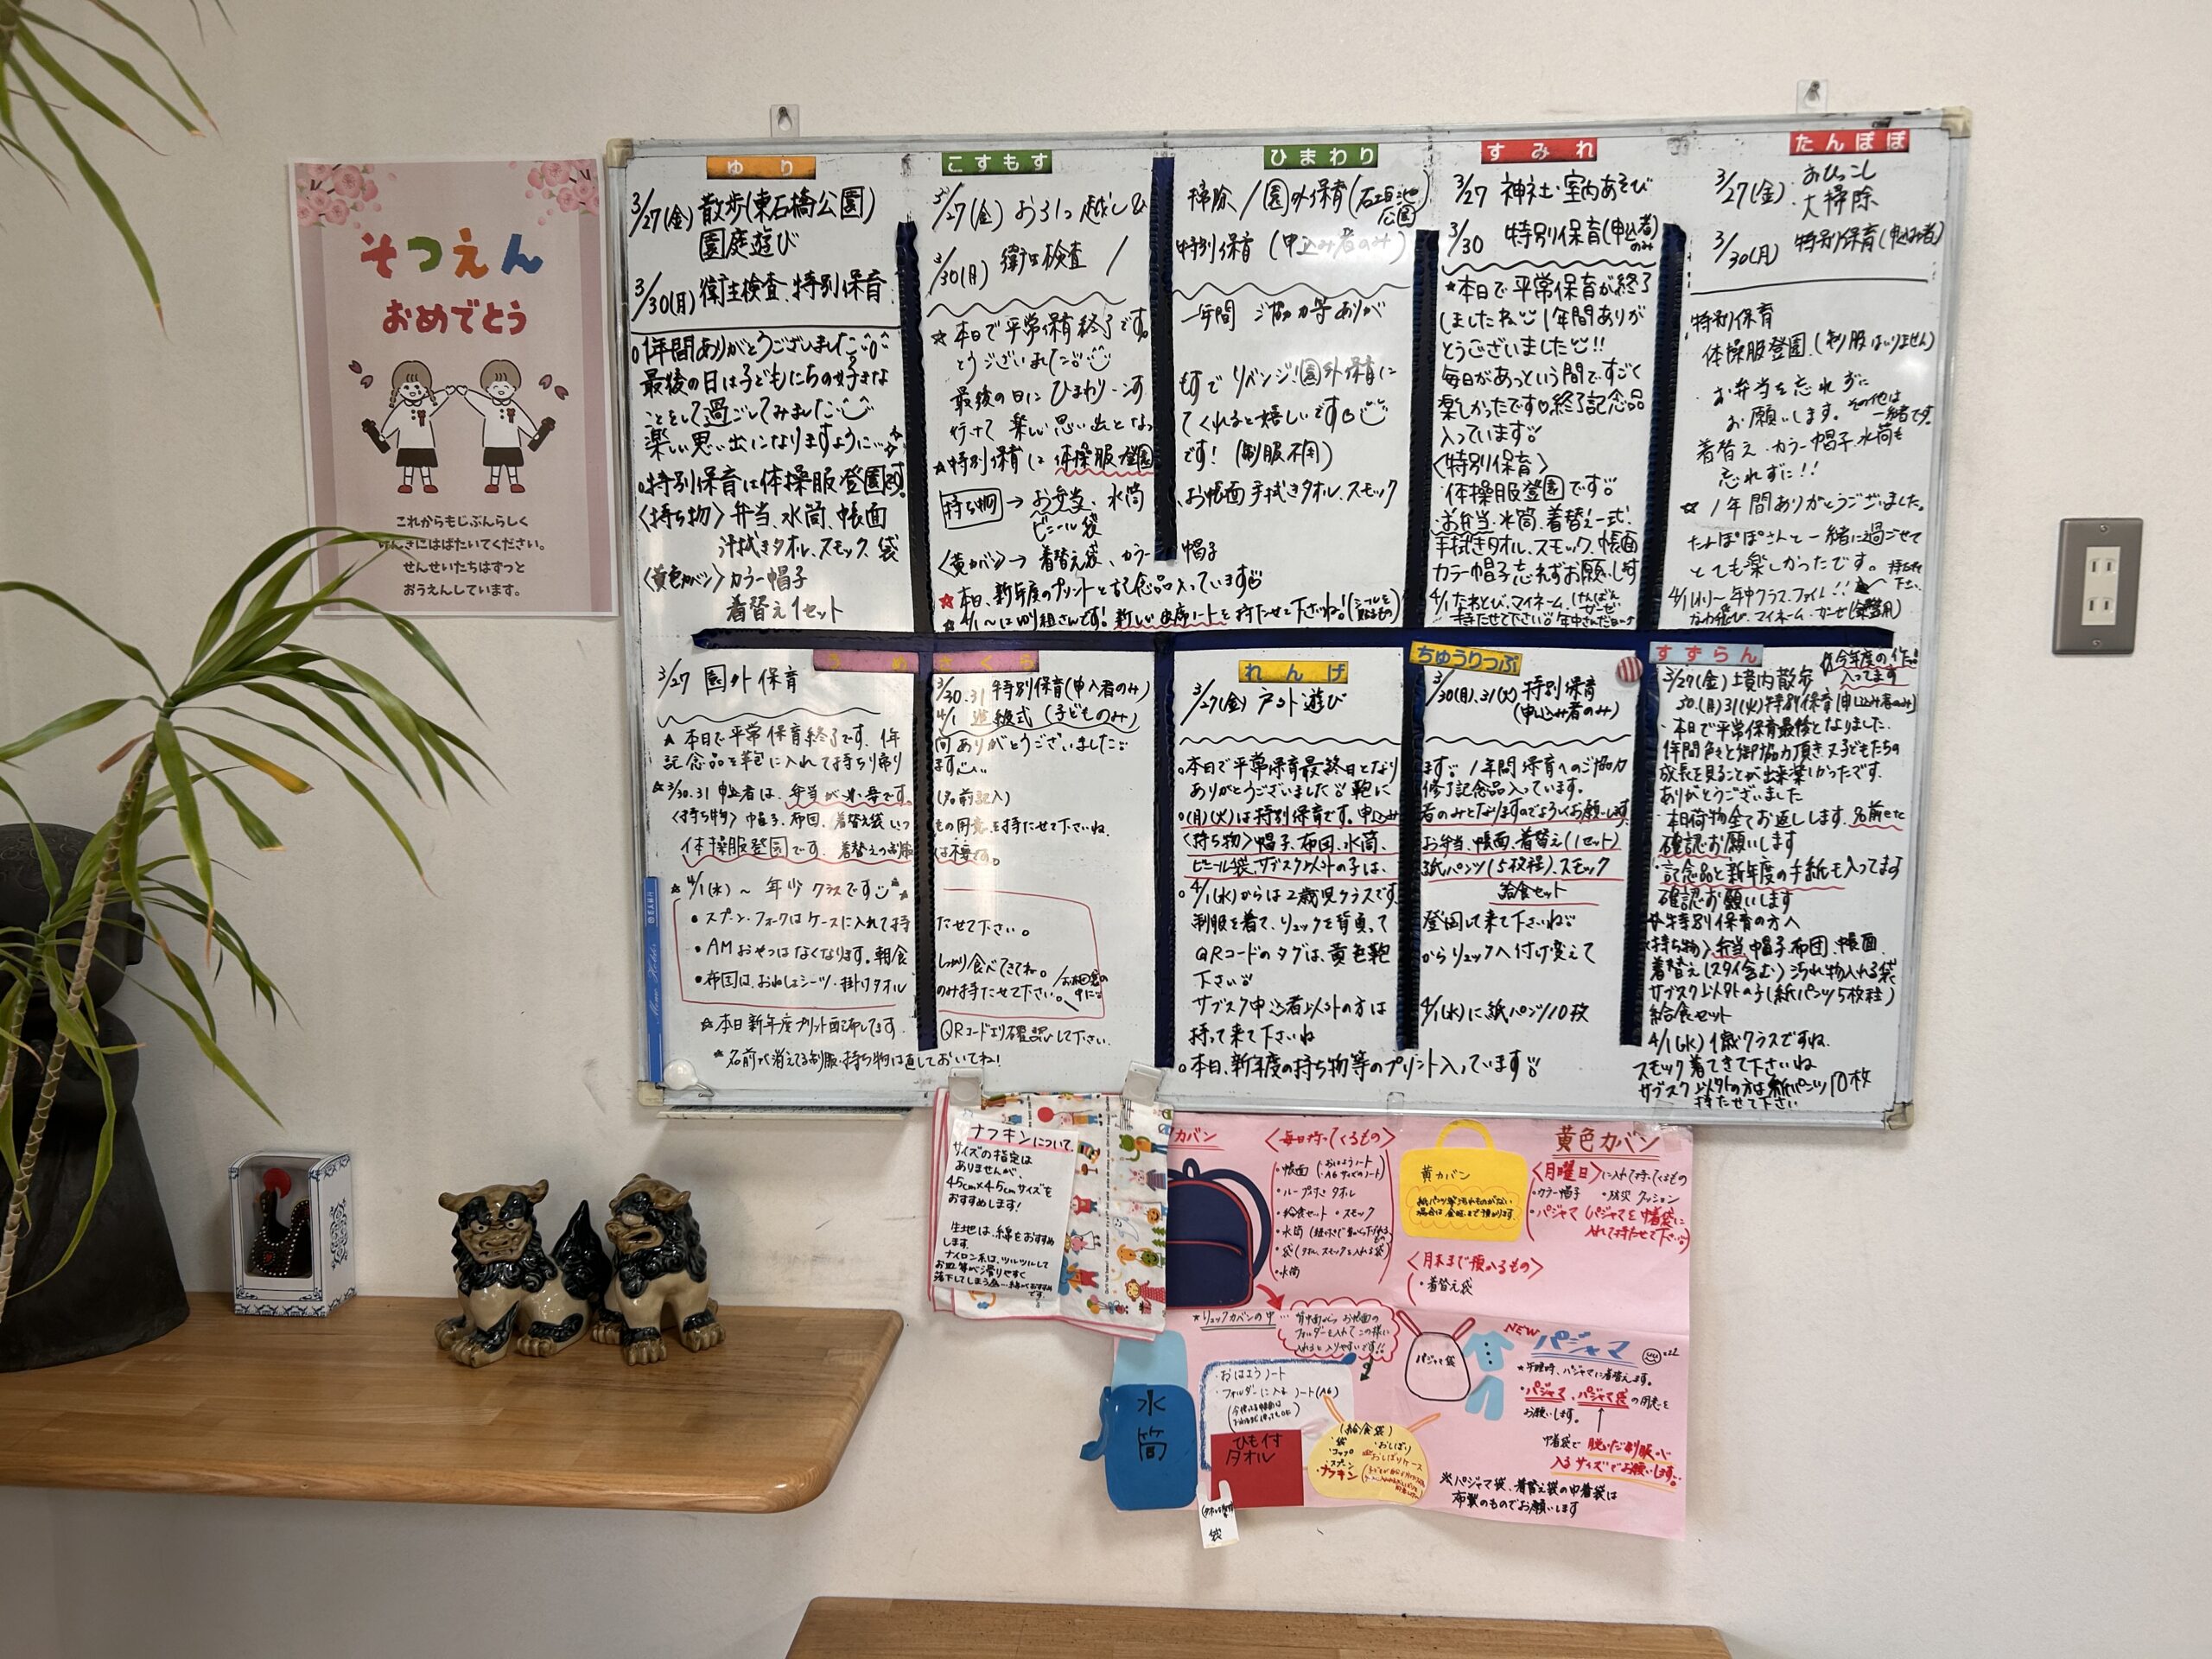 そつえん
おめでとう
これからもじぶんらしく
げんきにはばたいてください。
せんせいたちはずっと
おうえんしています。
ゆり
3/27(金) 散歩(東石橋公園)
園庭遊び
3/30(月) 衛生検査、特別保育
○1年間ありがとうございました
最後の日は子どもたちの好きな
ことをして過ごしてみました
楽しい思い出になりますように…
○特別保育は体操服登園です。
〈持ち物〉弁当、水筒、帳面
汗拭きタオル、スモック、袋
〈黄色カバン〉カラー帽子
着替え1セット
こすもす
ひまわり
3/27(金) お引っ越し&掃除/園外保育(石垣池公園)
3/30(月) 衛生検査/特別保育(申込み者のみ)
☆本日で平常保育終了です。一年間 ご協力等ありが
とうございました
最後の日にひまわり、こす もすでリベンジ!園外保育に
行けて 楽しい思い出となっ てくれると嬉しいです
★特別保育は体操服登園 です! (制服不用)
持ち物→お弁当、水筒、お帳面 手拭きタオル、スモック
ビニール袋
〈黄カバン〉→着替え袋、カラー 帽子
☆本日、新年度のプリントと記念品入っています
★4/1~はゆり組さんです!新しい出席ノートを持たせて下さいね!(シールを貼るもの)
すみれ
3/27 神社・室内あそび
3/30 特別保育(申込者のみ)
★本日で平常保育が終了
しましたね 1年間ありが
とうございました!!
毎日があっという間ですごく
楽しかったです♡終了記念品
入っています
〈特別保育〉
体操服登園です
お弁当・水筒・着替え一式・
手拭きタオル、スモック、帳面
カラー帽子忘れずお願いします
4/1 なわとび、マイネーム、けんばんガーゼ
持たせて下さい 年中さんだヨ
たんぽぽ
3/27(金) おひっこし
大掃除
3/30(月) 特別保育(申込み者)
特別保育
体操服登園(制服はいりません)
・お弁当を忘れずに
お願いします。その他は一緒です。
着替え・カラー帽子・水筒も
忘れずに!!
☆1年間ありがとうございました。
たんぽぽさんと一緒に過ごせて
とても楽しかったです。
4/1(水)~年中クラス、ファイト!! 持たせて下さい
なわ飛び・マイネーム・ガーゼ
うめ
さくら
3/27 園外保育
3/30.31 特別保育(申込者のみ)
4/1 進級式(子どものみ)
★本日で平常保育終了です。1年間ありがとうございました
記念品を鞄に入れて持ち帰ります
☆3/30.31 申込者は、弁当が必要です。(名前記入)
〈持ち物〉帽子、布団、着替え袋 いつもの用意を持たせて下さいね。
体操服登園です。着替えの制服は不要です。
★4/1(水)~ 年少クラスです
・スプーン・フォークはケースに入れて持たせて下さい。
・AMおやつはなくなります。朝食しっかり食べてきてね。
・布団は、おねしょシーツ・掛けタオルのみ持たせて下さい。/お布団袋の中に
☆本日新年度プリント配布してます。QRコードより確認して下さい。
★名前が消えてる制服・持ち物は直しておいてね!
れんげ
ちゅうりっぷ
3/27(金) 戸外遊び
3/30(月)、31(火) 特別保育
(申込み者のみ)
○本日で平常保育最終日となります 1年間保育へのご協力
ありがとうございました 鞄に修了記念品入っています。
○(月)(火)は特別保育です。申込み者のみとなりますのでよろしくお願いします。
〈持ち物〉帽子、布団、水筒、お弁当、帳面、着替え(1セット)
ビニール袋、サブスク以外の子は、紙パンツ(5枚程)、スモック
給食セット
○4/1(水)からは2歳児クラスです
制服を着て、リュックを背負って登園して来て下さいね
QRコードのタグは、黄色鞄からリュックへ付け変えて
下さい
サブスク申込者以外の方は 4/1(水)に紙パンツ10枚
持って来て下さいね
○本日、新年度の持ち物等のプリント入っています
すずらん
☆今年度の作品入ってます
3/27(金) 境内散歩
30.(月)31(火)特別保育(申し込み者のみ)
・本日で平常保育最後となりました。
1年間色々と御協力頂き又子どもたちの
成長を見ることが出来楽しかったです。
ありがとうございました
・本日荷物全てお返しします。名前など
確認お願いします
・記念品と新年度の手紙も入ってます
確認お願いします
☆特別保育の方へ
〈持ち物〉弁当 帽子 布団、帳面、
着替え(スタイ含む)汚れ物入れる袋
サブスク以外の子(紙パンツ5枚程)
給食セット
4/1(水)1歳クラスですね。
スモック着てきて下さいね
サブスク以外の方は紙パンツ10枚
持たせて下さい
ナフキンについて
サイズの指定は
ありませんが、
45cm×45cmサイズを
おすすめします!
生地は、綿をおすすめ
します。
ナイロン系は、ツルツルして
お皿等が滑りやすく
落下してしまう為…綿がおすすめです。
カバン
〈毎日持ってくるもの〉
・帳面(おはようノート
A6サイズのノート)
・ループ付きタオル
・給食セット ・スモック
・水筒
・袋(タオル、スモックを入れる袋)
・水筒
★リュックカバンの中…
黄色カバン
黄カバン
〈月曜日〉に入れて持ってくるもの
・カラー帽子 ・防災クッション
・パジャマ(パジャマを巾着袋に
入れて持たせて下さい)
〈月末まで預かるもの〉
・着替え袋
・おはようノート
・フォルダーに入るノート(A6)
水筒
ひも付
タオル
(給食袋)
・袋 ・おしぼり
・コップ ・おしぼりケース
・スプーン
・ナフキン
袋
パジャマ袋
NEW パジャマ
★午睡時、パジャマに着替えます。
・パジャマ、パジャマ袋の用意を
お願いします。
巾着袋で 脱いだ制服が
入るサイズでお願いします。
※パジャマ袋、着替え袋の巾着袋は
布製のものでお願いします